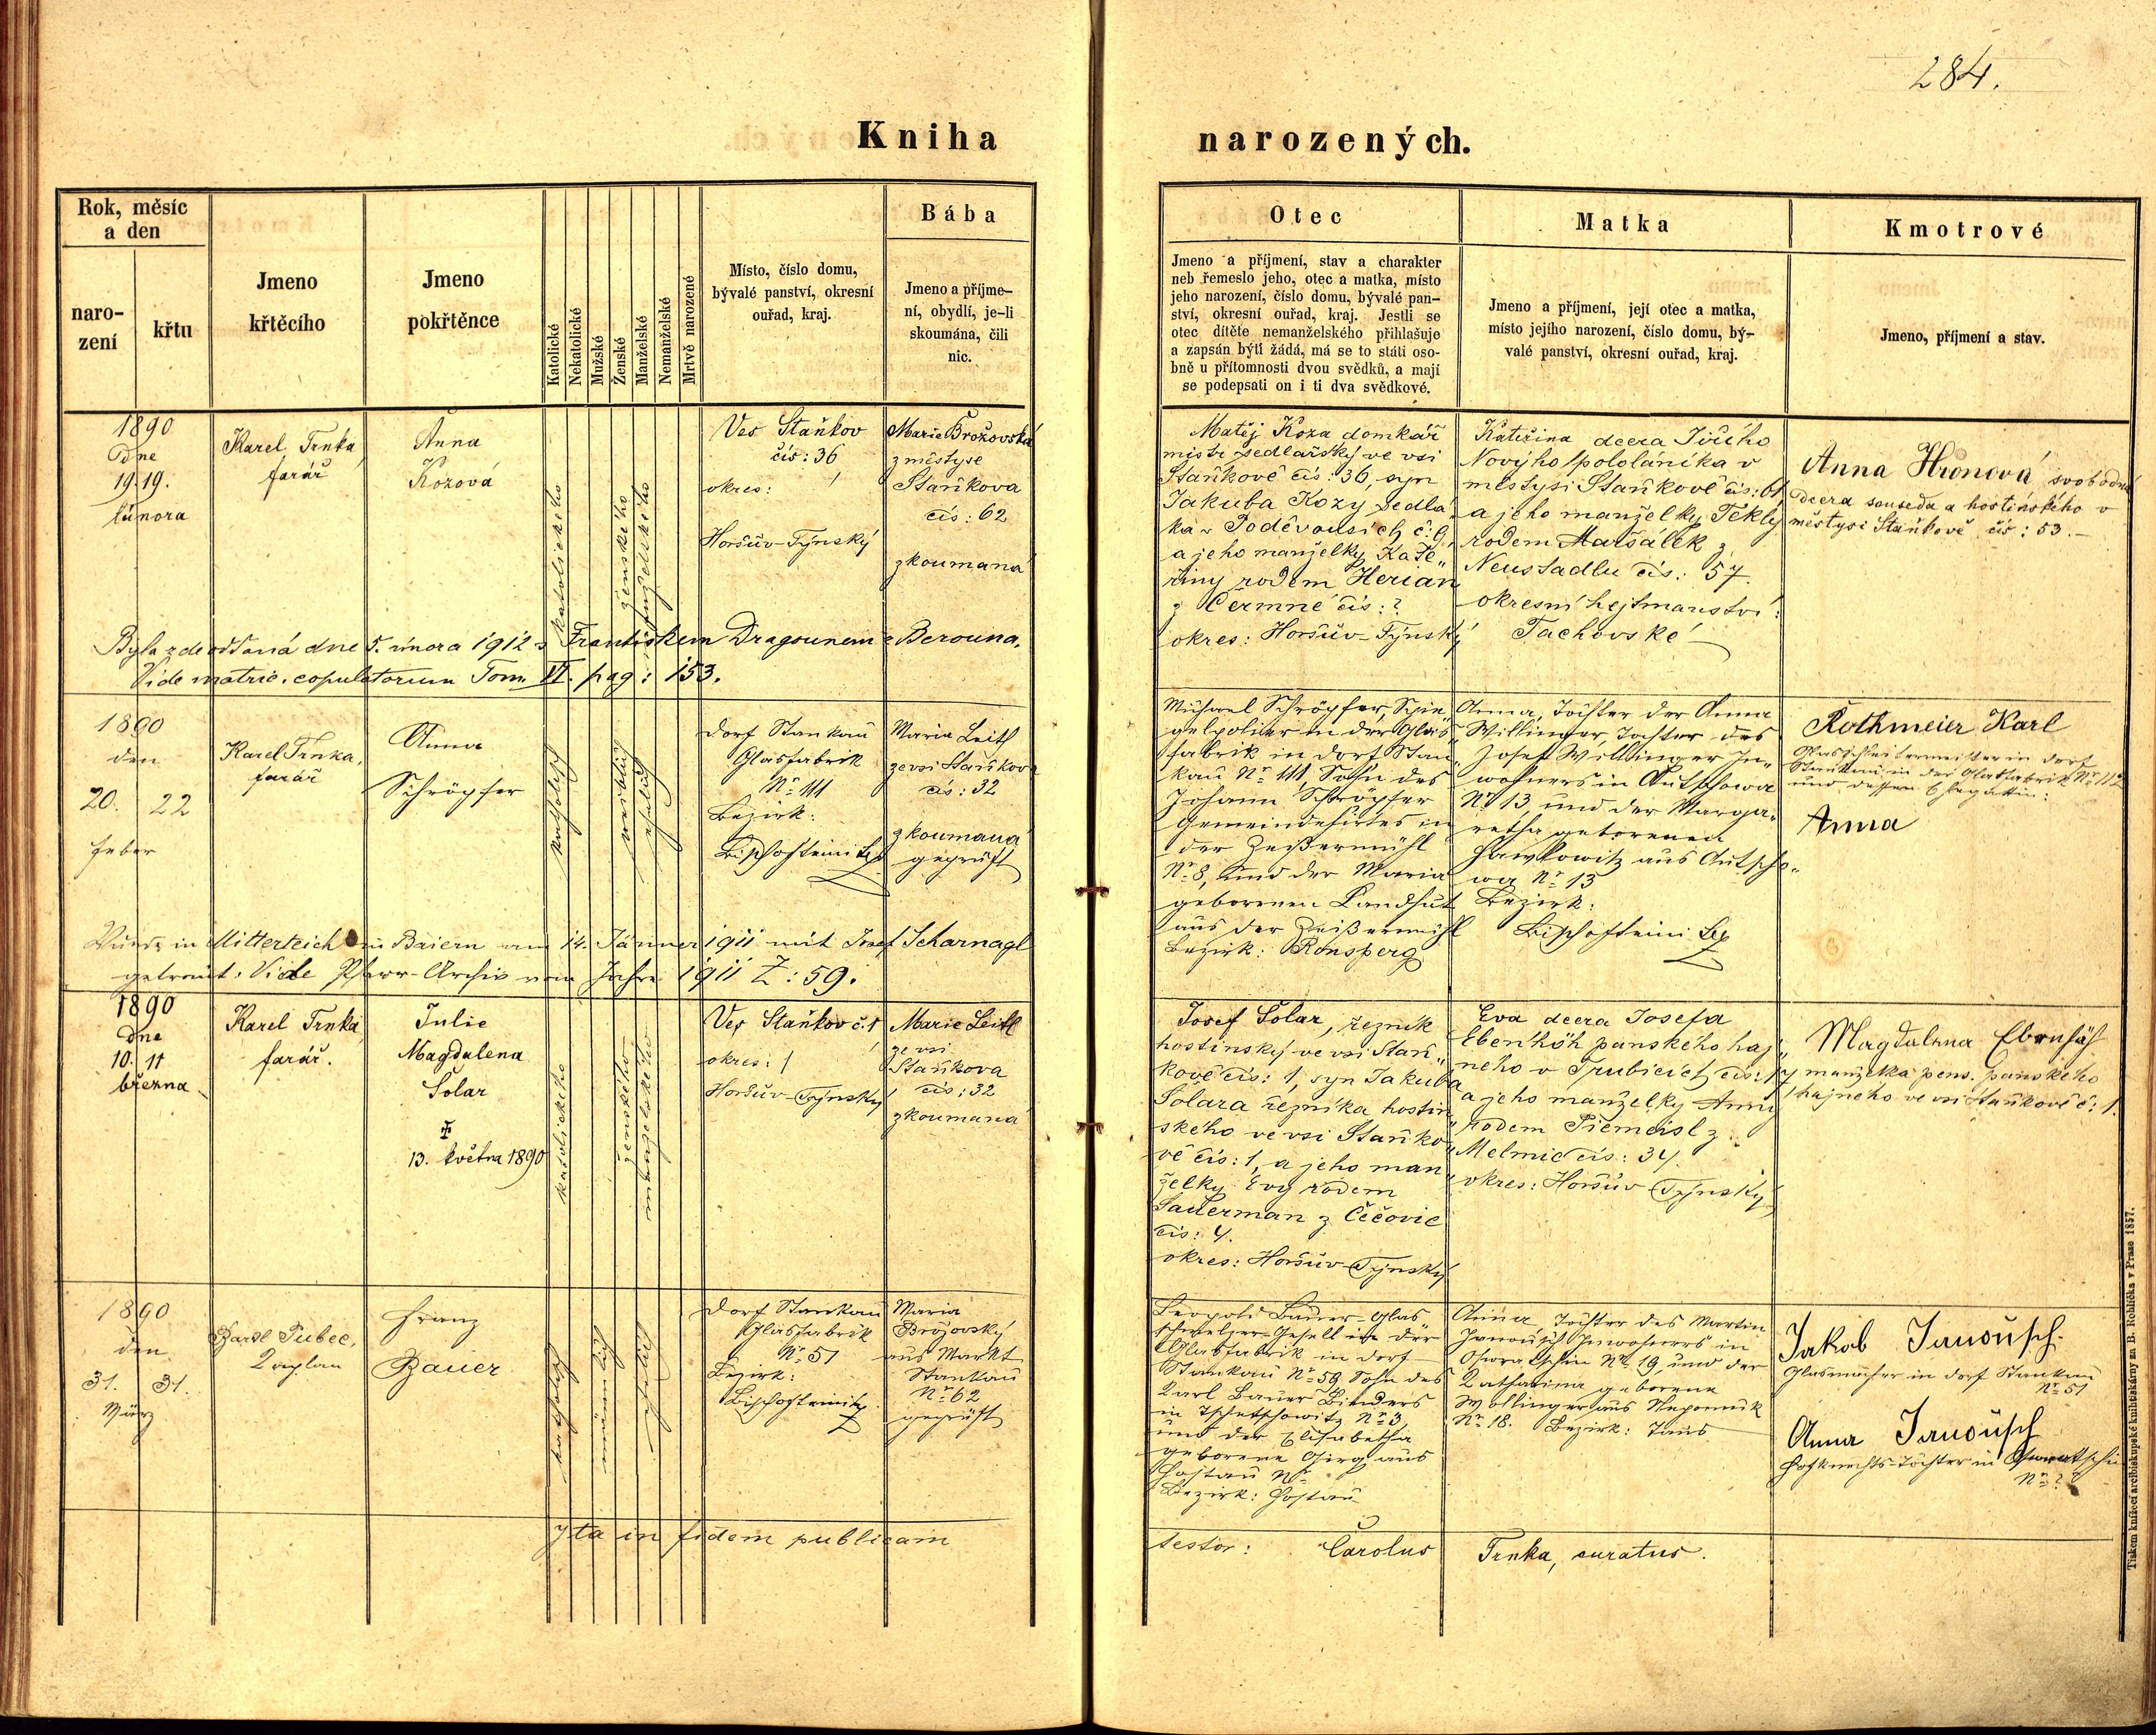 284.
Kniha narozených.
Rok, měsíc
a den
naro-
zení
křtu
Jmeno
křtěcího
Jmeno
pokřtěnce
Katolické
Nekatolické
Mužské
Ženské
Manželské
Nemanželské
Mrtvě narozené
Místo, číslo domu,
bývalé panství, okresní
ouřad, kraj.
Bába
Jmeno a příjme-
ní, obydlí, je-li
skoumána, čili
nic.
Otec
Jmeno a příjmení, stav a charakter
neb řemeslo jeho, otec a matka, místo
jeho narození, číslo domu, bývalé pan-
ství, okresní ouřad, kraj. Jestli se
otec dítěte nemanželského přihlašuje
a zapsán býti žádá, má se to státi oso-
bně u přítomnosti dvou svědků, a mají
se podepsati on i ti dva svědkové.
Matka
Jmeno a příjmení, její otec a matka,
místo jejího narození, číslo domu, bý-
valé panství, okresní ouřad, kraj.
Kmotrové
Jmeno, příjmení a stav.
1890
dne
19. 19.
února
Karel Trnka
farář
Anna
Kozová
katolického
ženského
manželského
Ves Staňkov
čís: 36
okres:
Horšův-Týnský
Marie Brožovská
z městyse
Staňkova
čís: 62
zkoumaná
Matěj Koza domkář
mistr sedlářský ve vsi
Staňkově čís: 36, syn
Jakuba Kozy sedlá-
ka v Poděvousích č. 9,
a jeho manželky Kate„
řiny rodem Herian
z Čermné čís: ?
okres: Horšův-Týnský
Kateřina dcera Jiřího
Nového pololáníka v
městysi Staňkově čís: 61
a jeho manželky Tekly
rodem Maršálek z
Neustadlu čís: 57.
okresní hejtmanství:
Tachovské
Anna Hronová svobodná
dcera souseda a hostinského v
městysi Staňkově čís: 53.-
Byla zde oddaná dne 5. února 1912 s Františkem Dragounem z Berouna.
Vide matric. copulatorum Tom. VI. pag: 153.
1890
den
20. 22
Feber
Karel Trnka,
farář
Anna
Schröpfer
katholisch
weiblich
ehelich
Dorf Stankau
Glasfabrik
Nr 111
Bezirk:
Bischofteinitz
Maria Leitl
ze vsi Staňkova
čís: 32
zkoumaná
geprüft
Michael Schröpfer, Spie„
gelpolirer in der Glas„
fabrik in Dorf Stan„
kau Nr 111, Sohn des
Johann Schröpfer
Gemeindehirtes in
der Zeißermühl
Nr 8, und der Maria
geborenen Landhut
aus der Zeißermühl
Bezirk: Ronsperg
Anna, Tochter der Anna
Willinger, Tochter des
Josef Willinger In„
wohners in Autschowa
Nr 13 und der Marga„
retha geborenen
Hawlowitz aus Autscho„
wa Nr 13
Bezirk:
Bischofteinitz
Rothmeier Karl
Glasschleifermeister in Dorf
Stankau in der Glasfabrik Nr 112
und dessen Ehegattin:
Anna
Wurde in Mitterteich in Baiern am 14. Jänner 1911 mit Josef Scharnagl
getraut: Vide Pfarr-Archiv vom Jahre 1911 Z: 59.
1890
dne
10. 11
března
Karel Trnka
farář.
Julie
Magdalena
Solar
13. května 1890
katolického
ženského
manželského
Ves Staňkov č. 1
okres:
Horšův-Týnský
Marie Leitl
ze vsi
Staňkova
čís: 32
zkoumaná
Josef Solar, řezník
hostinský ve vsi Staň„
kově čís: 1, syn Jakuba
Solara řezníka hostin„
ského ve vsi Staňko„
vě čís: 1, a jeho man„
želky Evy rodem
Sauerman z Čečovic
čís: 4.
okres: Horšův-Týnský
Eva dcera Josefa
Ebenhöh panského haj„
ného v
a jeho manželky Anny
rodem z
Melmic čís: 34.
okres: Horšův-Týnský
Magdalena Ebenhöh
manželka pens. panského
hajného ve vsi Staňkově č: 1.
1890
den
31. 31.
März
Karl Tubec,
Kaplan
Franz
Bauer
katholisch
männlich
ehelich
Dorf Stankau
Glasfabrik
Nr 51
Bezirk:
Bischofteinitz
Maria
Brožovský
aus Markt
Stankau
Nr 62
geprüft
Leopold Bauer Glas„
schmelzer-Gesell in der
Glasfabrik in Dorf
Stankau Nr 59, Sohn des
Karl Bauer Binders
in Tschetschowitz Nr 3,
und der Elisabetha
geborene Girg aus
Hostau Nr
Bezirk: Hostau
Anna, Tochter des Martin
Janousch Inwohners in
Chwalschin Nr 19, und der
Katharina geborene
Wollinger aus Nepomuk
Nr 18. Bezirk: Taus
Jakob Janousch.
Glasmacher in Dorf Stankau
Nr 51
Anna Janousch
Hofknechts-Tochter in
Nr ?
Ita in fidem publicam testor: Carolus Trnka, curatus.
Tiskem knížecí arcibiskupské knihtiskárny za B. Rohlíčka v Praze 1857.